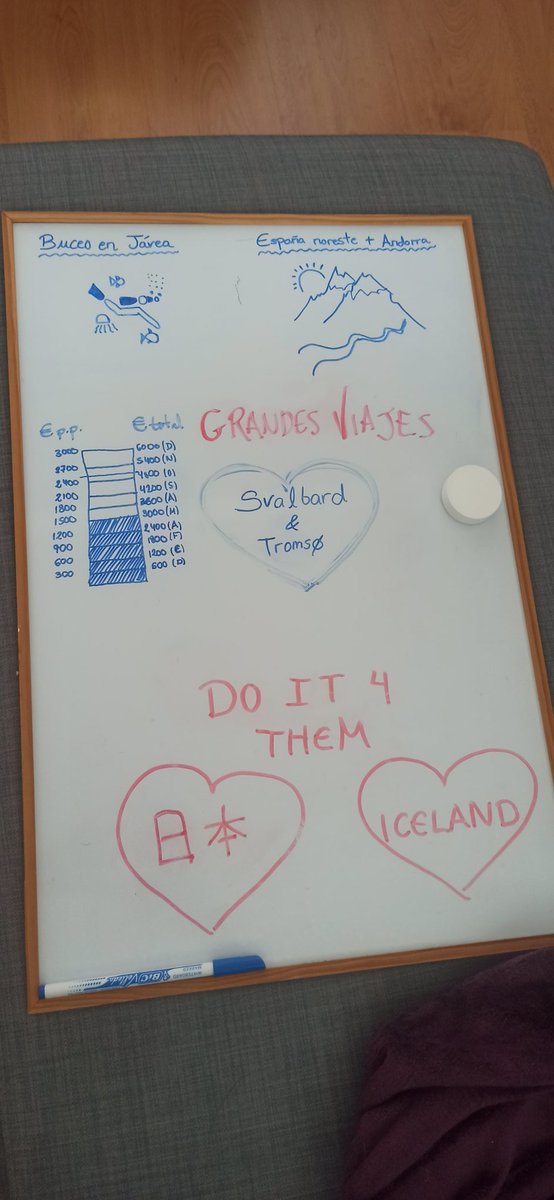 Buceo en Jávea
España noreste + Andorra
€ p.p.
€ total
GRANDES VIAJES
3000
6000 (D)
2700
5400 (N)
2400
4800 (O)
2100
4200 (S)
1800
3600 (A)
1500
3000 (M)
1200
2400 (A)
900
1800 (F)
600
1200 (E)
300
600 (D)
Svalbard
&
Tromsø
DO IT 4
THEM
日本
ICELAND
WHITEBOARD
MARKER
BIC Velleda